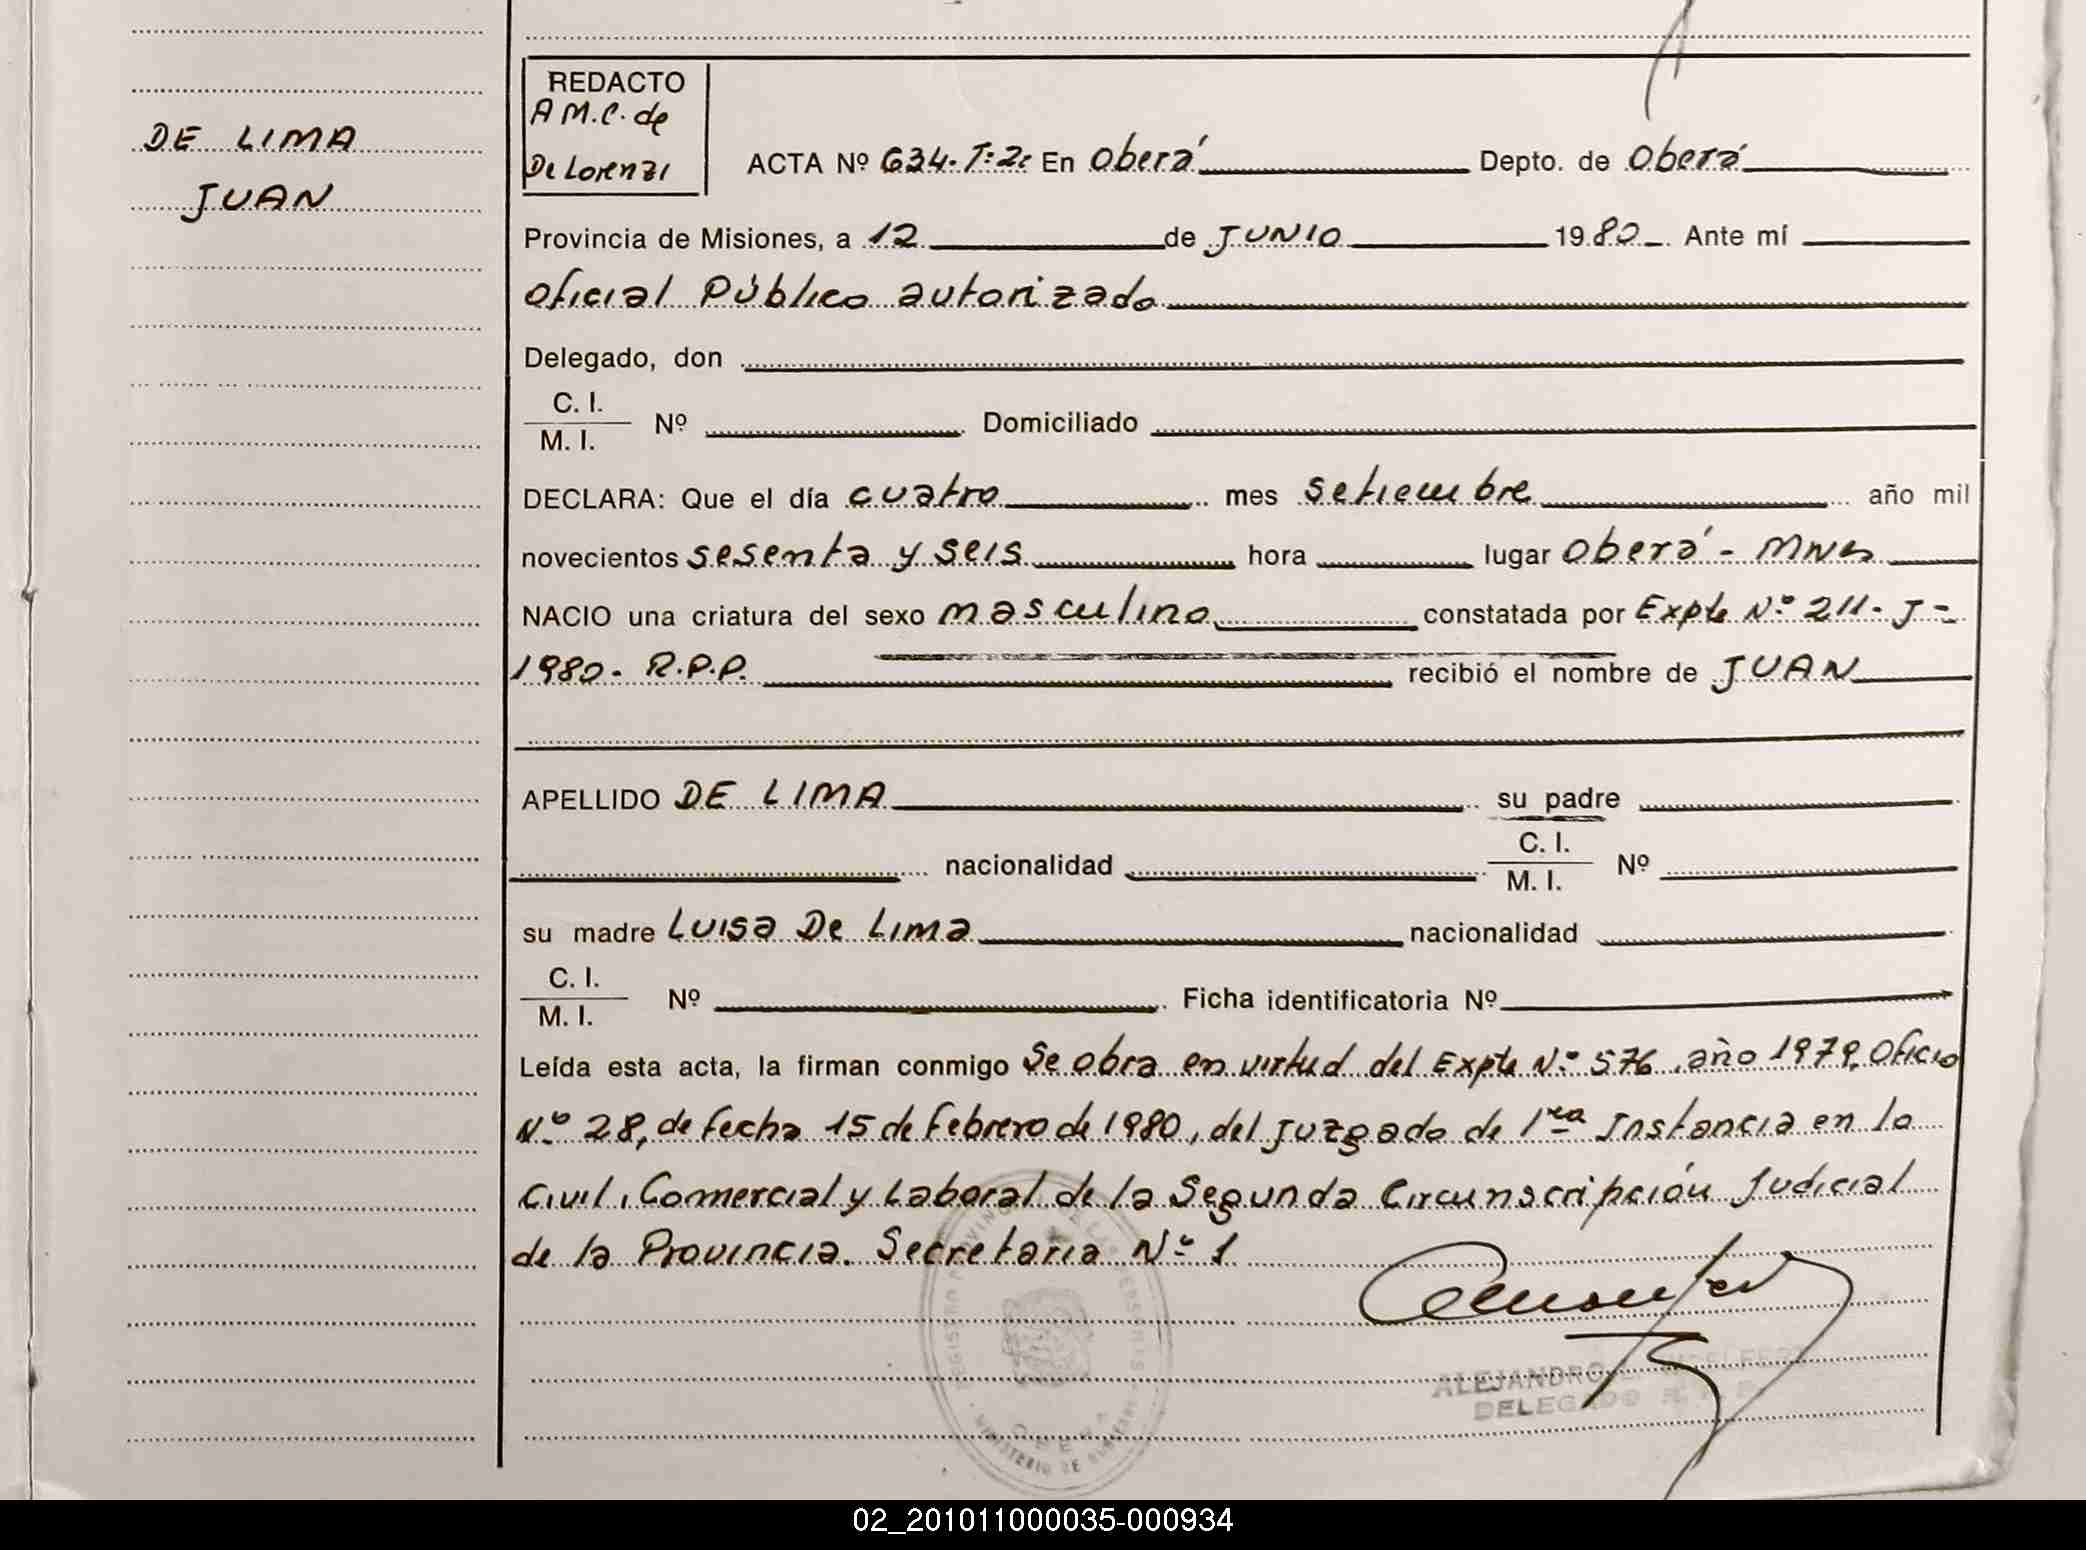 REDACTO
A M.C. de
De Lorenzi
DE LIMA
JUAN
ACTA Nº 634-Tº2: En Oberá Depto. de Oberá
Provincia de Misiones, a 12 de JUNIO 1980 Ante mí
Oficial Público autorizado
Delegado, don
C. I.
M. I. Nº Domiciliado
DECLARA: Que el día cuatro mes setiembre año mil
novecientos sesenta y seis hora lugar Oberá - Mnes
NACIO una criatura del sexo masculino constatada por Expte Nº 211- J -
1980- R.P.P. recibió el nombre de JUAN
APELLIDO DE LIMA su padre
nacionalidad C. I. Nº
M. I.
su madre Luisa De Lima nacionalidad
C. I.
M. I. Nº Ficha identificatoria Nº
Leída esta acta, la firman conmigo Se obra en virtud del Expte Nº 576, año 1979, Oficio
Nº 28, de fecha 15 de Febrero de 1980, del Juzgado de 1ra Instancia en lo
Civil, Comercial y Laboral de la Segunda Circunscripción Judicial
de la Provincia. Secretaria Nº 1
ALEJANDRO
DELEGADO R. P. P.
02_201011000035-000934